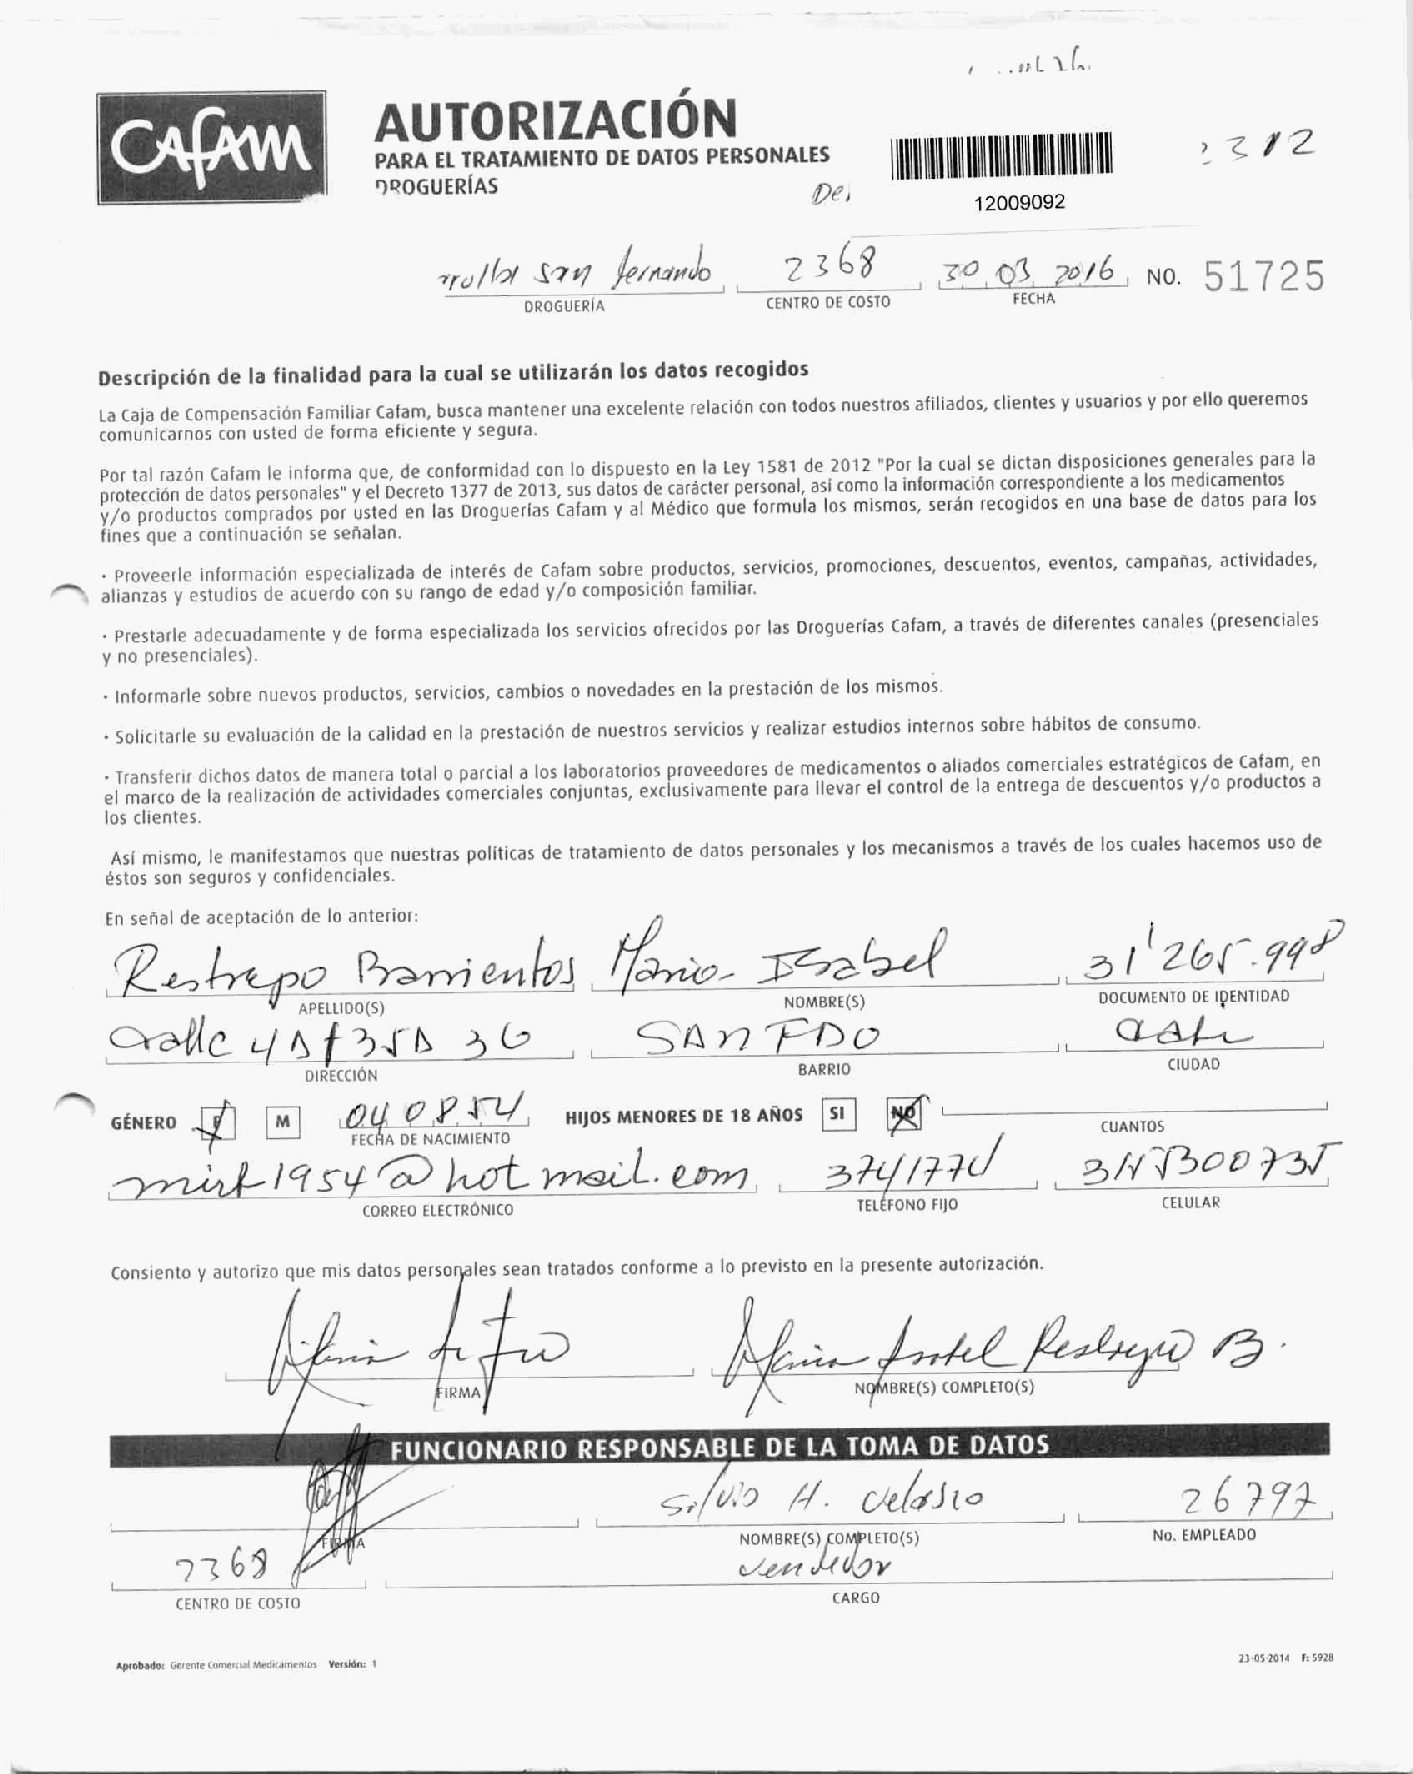 CAFAM
AUTORIZACIÓN
PARA EL TRATAMIENTO DE DATOS PERSONALES
DROGUERÍAS
12009092
312
san fernando 2368 30 03 2016 NO. 51725
DROGUERÍA CENTRO DE COSTO FECHA
Descripción de la finalidad para la cual se utilizarán los datos recogidos
La Caja de Compensación Familiar Cafam, busca mantener una excelente relación con todos nuestros afiliados, clientes y usuarios y por ello queremos
comunicarnos con usted de forma eficiente y segura.
Por tal razón Cafam le informa que, de conformidad con lo dispuesto en la Ley 1581 de 2012 "Por la cual se dictan disposiciones generales para la
protección de datos personales" y el Decreto 1377 de 2013, sus datos de carácter personal, así como la información correspondiente a los medicamentos
y/o productos comprados por usted en las Droguerías Cafam y al Médico que formula los mismos, serán recogidos en una base de datos para los
fines que a continuación se señalan.
· Proveerle información especializada de interés de Cafam sobre productos, servicios, promociones, descuentos, eventos, campañas, actividades,
alianzas y estudios de acuerdo con su rango de edad y/o composición familiar.
· Prestarle adecuadamente y de forma especializada los servicios ofrecidos por las Droguerías Cafam, a través de diferentes canales (presenciales
y no presenciales).
· Informarle sobre nuevos productos, servicios, cambios o novedades en la prestación de los mismos.
· Solicitarle su evaluación de la calidad en la prestación de nuestros servicios y realizar estudios internos sobre hábitos de consumo.
· Transferir dichos datos de manera total o parcial a los laboratorios proveedores de medicamentos o aliados comerciales estratégicos de Cafam, en
el marco de la realización de actividades comerciales conjuntas, exclusivamente para llevar el control de la entrega de descuentos y/o productos a
los clientes.
Así mismo, le manifestamos que nuestras políticas de tratamiento de datos personales y los mecanismos a través de los cuales hacemos uso de
éstos son seguros y confidenciales.
En señal de aceptación de lo anterior:
Restrepo Barrientos Maria Isabel 31'265.998
APELLIDO(S) NOMBRE(S) DOCUMENTO DE IDENTIDAD
Calle 4A # 35A 36 SAN FDO Cali
DIRECCIÓN BARRIO CIUDAD
GÉNERO F M 04 08 54 HIJOS MENORES DE 18 AÑOS SI NO
FECHA DE NACIMIENTO CUANTOS
mirf1954@hotmail.com 3741774
CORREO ELECTRÓNICO TELÉFONO FIJO CELULAR
Consiento y autorizo que mis datos personales sean tratados conforme a lo previsto en la presente autorización.
Maria Isabel Restrepo B.
FIRMA NOMBRE(S) COMPLETO(S)
FUNCIONARIO RESPONSABLE DE LA TOMA DE DATOS
Silvio H. Velasco 26797
FIRMA NOMBRE(S) COMPLETO(S) No. EMPLEADO
2368 Vendedor
CENTRO DE COSTO CARGO
Aprobado: Gerente Comercial Medicamentos Versión: 1 23-05-2014 F: 5928